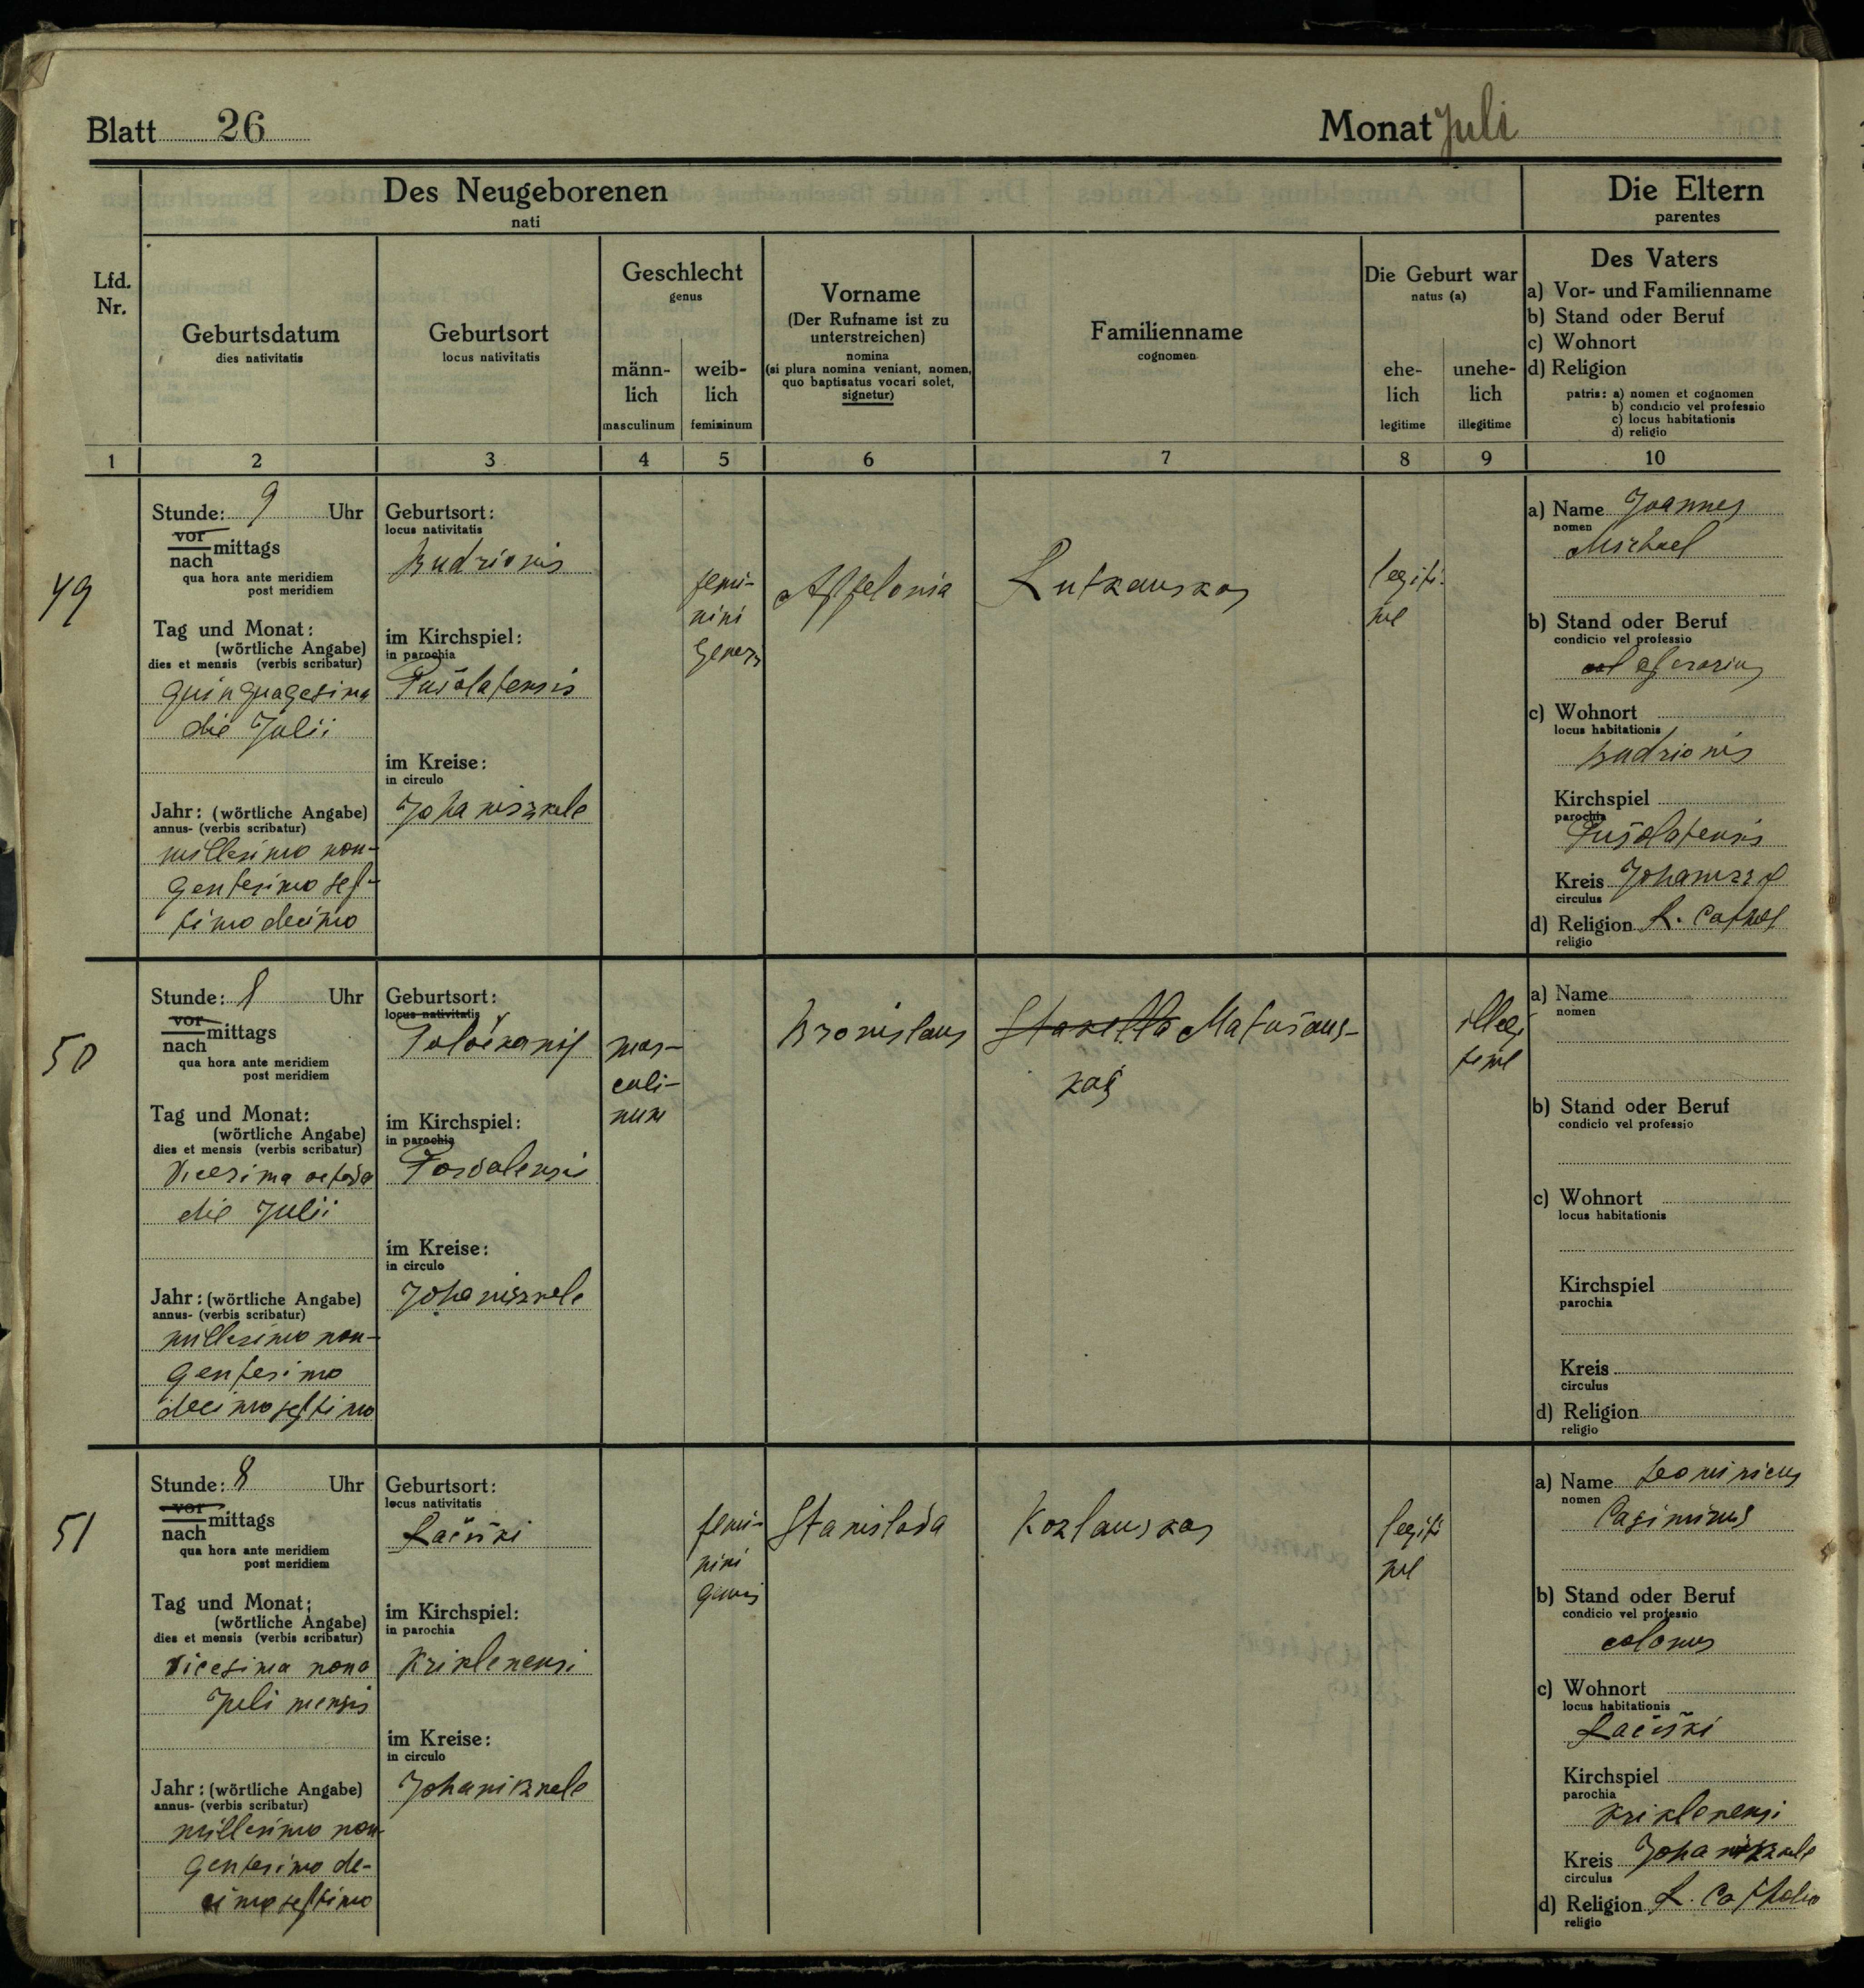 Blatt 26
Monat Juli
Des Neugeborenen
nati
Die Eltern
parentes
Lfd.
Nr.
Geburtsdatum
dies nativitatis
Geburtsort
locus nativitatis
Geschlecht
genus
männ-
lich
masculinum
weib-
lich
femininum
Vorname
(Der Rufname ist zu
unterstreichen)
nomina
(si plura nomina veniant, nomen,
quo baptisatus vocari solet,
signetur)
Familienname
cognomen
Die Geburt war
natus (a)
ehe-
lich
legitime
unehe-
lich
illegitime
Des Vaters
a) Vor- und Familienname
b) Stand oder Beruf
c) Wohnort
d) Religion
patris: a) nomen et cognomen
b) condicio vel professio
c) locus habitationis
d) religio
1 2 3 4 5 6 7 8 9 10
49
Stunde: 9 Uhr
vor
nach mittags
qua hora ante meridiem
post meridiem
Tag und Monat:
(wörtliche Angabe)
dies et mensis (verbis scribatur)
quinquagesima
die Julii
Jahr: (wörtliche Angabe)
annus- (verbis scribatur)
millesimo non-
gentesimo sep-
timo decimo
Geburtsort:
locus nativitatis
Budrionis
im Kirchspiel:
in parochia
Pušolatensis
im Kreise:
in circulo
Johaniszkele
femi-
nini
generis
Appelonia
Lutkauskas
legiti-
me
a) Name Joannes
nomen
Michael
b) Stand oder Beruf
condicio vel professio
operarius
c) Wohnort
locus habitationis
Budrionis
Kirchspiel
parochia
Pušolatensis
Kreis Johanisz
circulus
d) Religion R. Cathol
religio
50
Stunde: 1 Uhr
vor
nach mittags
qua hora ante meridiem
post meridiem
Tag und Monat:
(wörtliche Angabe)
dies et mensis (verbis scribatur)
Vicesima octava
die Julii
Jahr: (wörtliche Angabe)
annus- (verbis scribatur)
millesimo non-
gentesimo
decimo septimo
Geburtsort:
locus nativitatis
im Kirchspiel:
in parochia
Posvolensis
im Kreise:
in circulo
Johaniszkele
mas-
culi-
num
Bronislaus
Matušaus-
kas
illegi
time
a) Name
nomen
b) Stand oder Beruf
condicio vel professio
c) Wohnort
locus habitationis
Kirchspiel
parochia
Kreis
circulus
d) Religion
religio
51
Stunde: 8 Uhr
vor
nach mittags
qua hora ante meridiem
post meridiem
Tag und Monat:
(wörtliche Angabe)
dies et mensis (verbis scribatur)
Vicesima nona
Juli mensis
Jahr: (wörtliche Angabe)
annus- (verbis scribatur)
millesimo non
gentesimo de-
cimo septimo
Geburtsort:
locus nativitatis
Račiški
im Kirchspiel:
in parochia
Kriklenensi
im Kreise:
in circulo
Johaniszkele
femi-
nini
generis
Stanislava
Kozlauskas
legiti
me
a) Name
nomen
Casimirus
b) Stand oder Beruf
condicio vel professio
colonus
c) Wohnort
locus habitationis
Račiški
Kirchspiel
parochia
Kriklenensi
Kreis Johaniszkele
circulus
d) Religion R. Catholic
religio